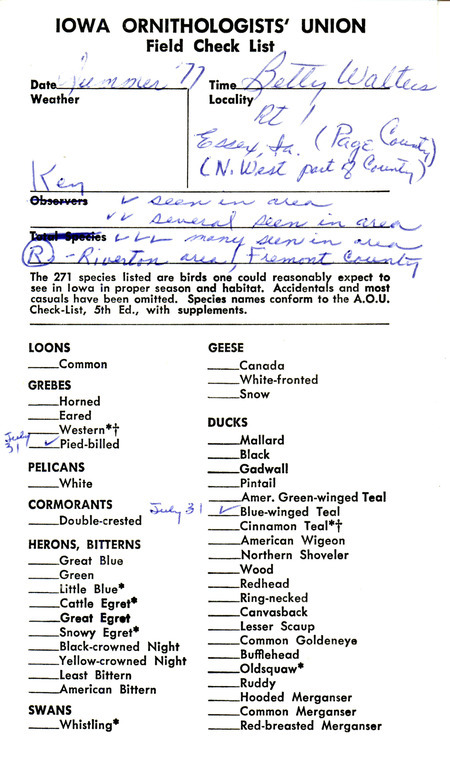 IOWA ORNITHOLOGISTS' UNION
Field Check List
Date Summer '77 Time Betty Walters
Weather Locality Rt 1
Essex, Ia. (Page County)
(N. West part of County)
Key
Observers ✓ seen in area
✓✓ several seen in area
Total Species ✓✓✓ many seen in area
R - Riverton area, Fremont County
The 271 species listed are birds one could reasonably expect to
see in Iowa in proper season and habitat. Accidentals and most
casuals have been omitted. Species names conform to the A.O.U.
Check-List, 5th Ed., with supplements.
LOONS
____Common
GREBES
____Horned
____Eared
____Western*†
July 31 ✓ Pied-billed
PELICANS
____White
CORMORANTS
____Double-crested
HERONS, BITTERNS
____Great Blue
____Green
____Little Blue*
____Cattle Egret*
____Great Egret
____Snowy Egret*
____Black-crowned Night
____Yellow-crowned Night
____Least Bittern
____American Bittern
SWANS
____Whistling*
GEESE
____Canada
____White-fronted
____Snow
DUCKS
____Mallard
____Black
____Gadwall
____Pintail
____Amer. Green-winged Teal
July 31 ✓ Blue-winged Teal
____Cinnamon Teal*†
____American Wigeon
____Northern Shoveler
____Wood
____Redhead
____Ring-necked
____Canvasback
____Lesser Scaup
____Common Goldeneye
____Bufflehead
____Oldsquaw*
____Ruddy
____Hooded Merganser
____Common Merganser
____Red-breasted Merganser